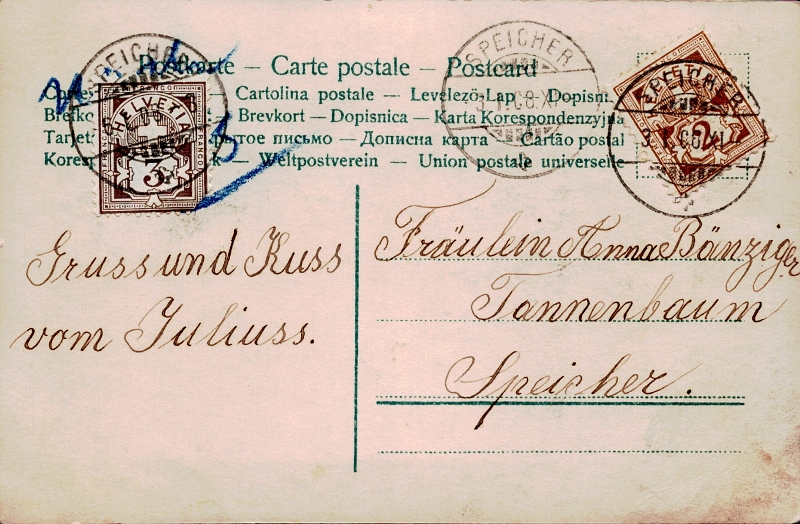 Postkarte – Carte postale – Postcard
Cartolina postale – Levelező-Lap – Dopisni
Brevkort – Dopisnica – Karta Korespondenzyjna
письмо – Дописна карта – Cartão postal
Weltpostverein – Union postale universelle
SPEICHER
HELVETIA
FRANCO
3
SPEICHER
SPEICHER
2
3
Gruss und Kuss
vom Juliuss.
Fräulein Anna Bänziger
Tannenbaum
Speicher.